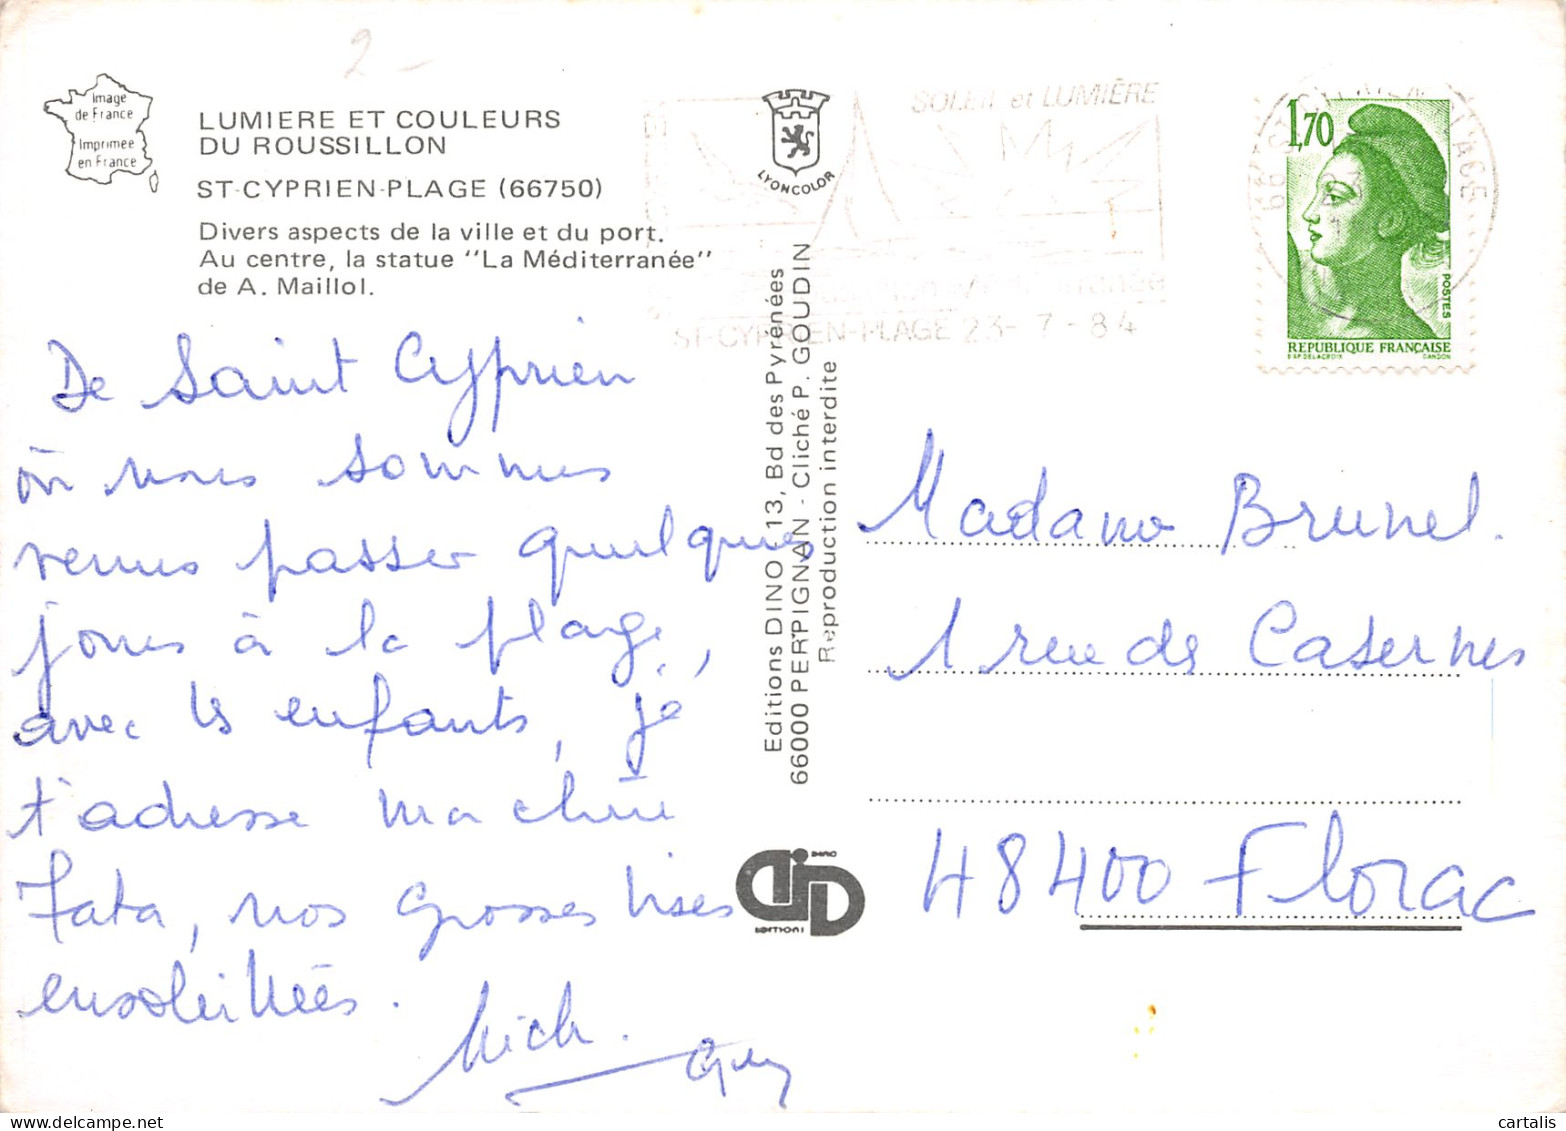 2-
Image
de France
Imprimée
en France
LUMIERE ET COULEURS
DU ROUSSILLON
ST-CYPRIEN-PLAGE (66750)
Divers aspects de la ville et du port.
Au centre, la statue "La Méditerranée"
de A. Maillol.
De Saint Cyprien
où nous sommes
venus passer quelques
jours à la plage,
avec les enfants, je
t'adresse ma chère
Tata, nos grosses bises
ensoleillées.
Mich.
Guy
LYONCOLOR
SOLEIL et LUMIÈRE
Méditerranée
ST-CYPRIEN-PLAGE 23-7-84
66 ST CYPRIEN PLAGE
1,70
POSTES
REPUBLIQUE FRANÇAISE
D'AP. DELACROIX GANDON
Editions DINO 13, Bd des Pyrénées
66000 PERPIGNAN - Cliché P. GOUDIN
Reproduction interdite
DINO
EDITIONS
Madame Brunel.
1 rue des Casernes
48400 Florac
cartalis